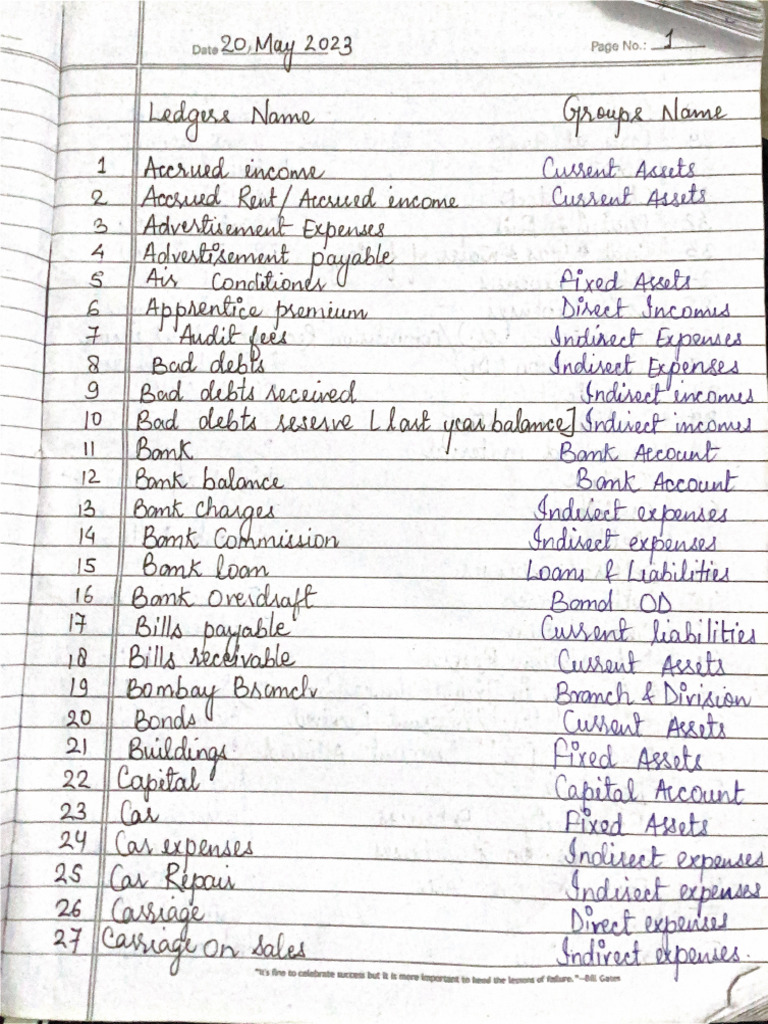 Date 20, May 2023 Page No.: 1
Ledgers Name Groups Name
1 Accrued income Current Assets
2 Accrued Rent/Accrued income Current Assets
3 Advertisement Expenses
4 Advertisement payable
5 Air Conditioner Fixed Assets
6 Apprentice premium Direct Incomes
7 Audit fees Indirect Expenses
8 Bad debts Indirect Expenses
9 Bad debts received Indirect incomes
10 Bad debts reserve [last year balance] Indirect incomes
11 Bank Bank Account
12 Bank balance Bank Account
13 Bank charges Indirect expenses
14 Bank Commission Indirect expenses
15 Bank loan Loans & Liabilities
16 Bank Overdraft Band OD
17 Bills payable Current liabilities
18 Bills receivable Current Assets
19 Bombay Branch Branch & Division
20 Bonds Current Assets
21 Buildings Fixed Assets
22 Capital Capital Account
23 Car Fixed Assets
24 Car expenses Indirect expenses
25 Car Repair Indirect expenses
26 Carriage Direct expenses
27 Carriage on sales Indirect expenses.
"It's fine to celebrate success but it is more important to heed the lessons of failure." –Bill Gates